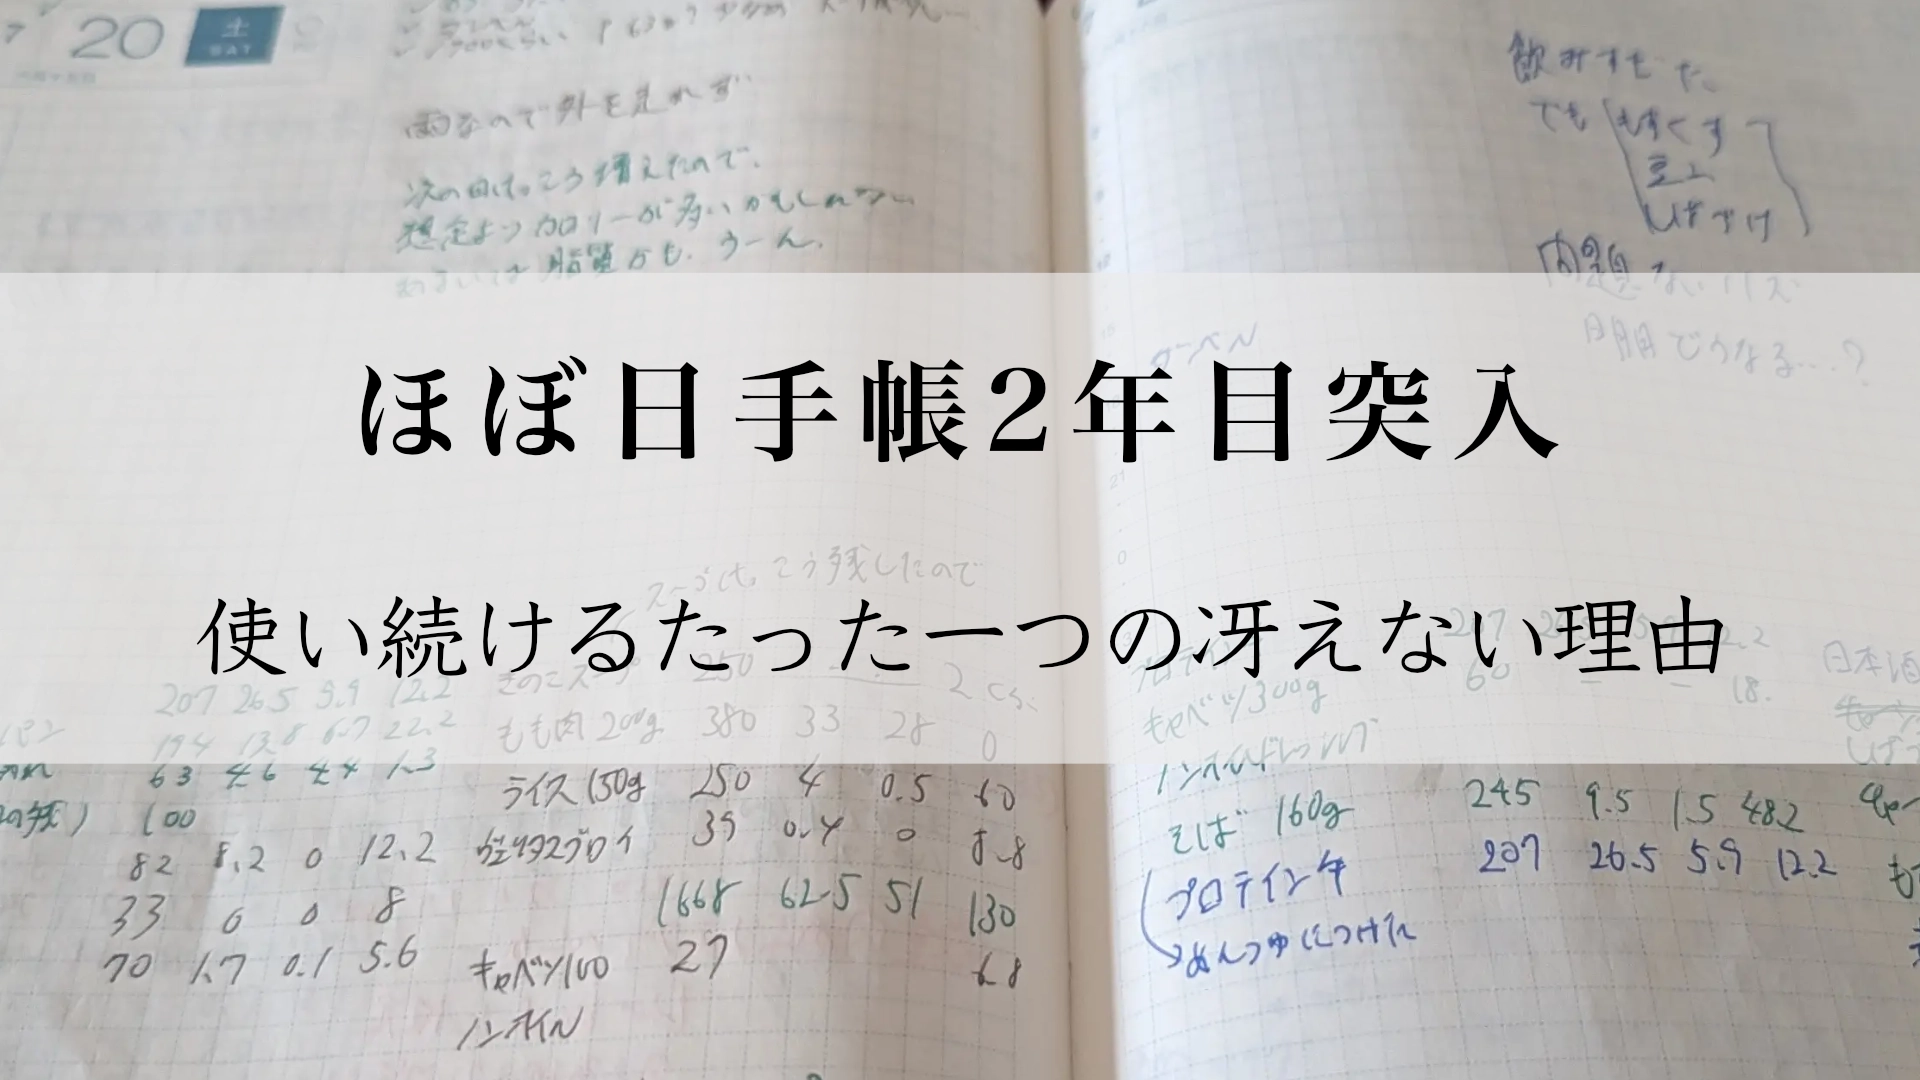 20 土
SAT
雨なので外を走れず
次の日けっこう増えたので、
想定よりカロリーが多いかもしれない
あるいは脂質かも。うーん。
飲みすぎた
でも もずくす
豆腐
しばづけ
問題ないハズ
明朝どうなる…?
ほぼ日手帳2年目突入
使い続けるたった一つの冴えない理由
スープけっこう残したので
きのこスープ 250
もも肉200g 380 33 28 0
ライス150g 250 4 0.5 60
39 0.4 0 8.8
1668 62.5 51 130
キャベツ100 27 6.8
ノンオイル
207 26.5 5.9 12.2
194 13.8 6.7 22.2
63 4.6 4.4 1.3
100
82 8.2 0 12.2
33 0 0 8
70 1.7 0.1 5.6
プロテイン 207
キャベツ300g 60 18.
ノンオイルドレッシング
そば 160g 245 9.5 1.5 48.2
プロテイン牛 207 26.5 5.9 12.2
めんつゆにつけた
日本酒